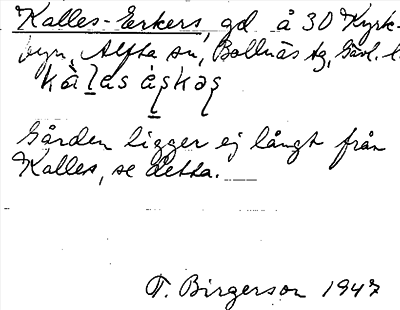 Kalles-Eerkers, gd å 30 Kyrk-
byn, Alfta sn, Bollnäs tg, Gävl. l.
Gården ligger ej långt från
Kalles, se detta.
T. Birgerson 1947